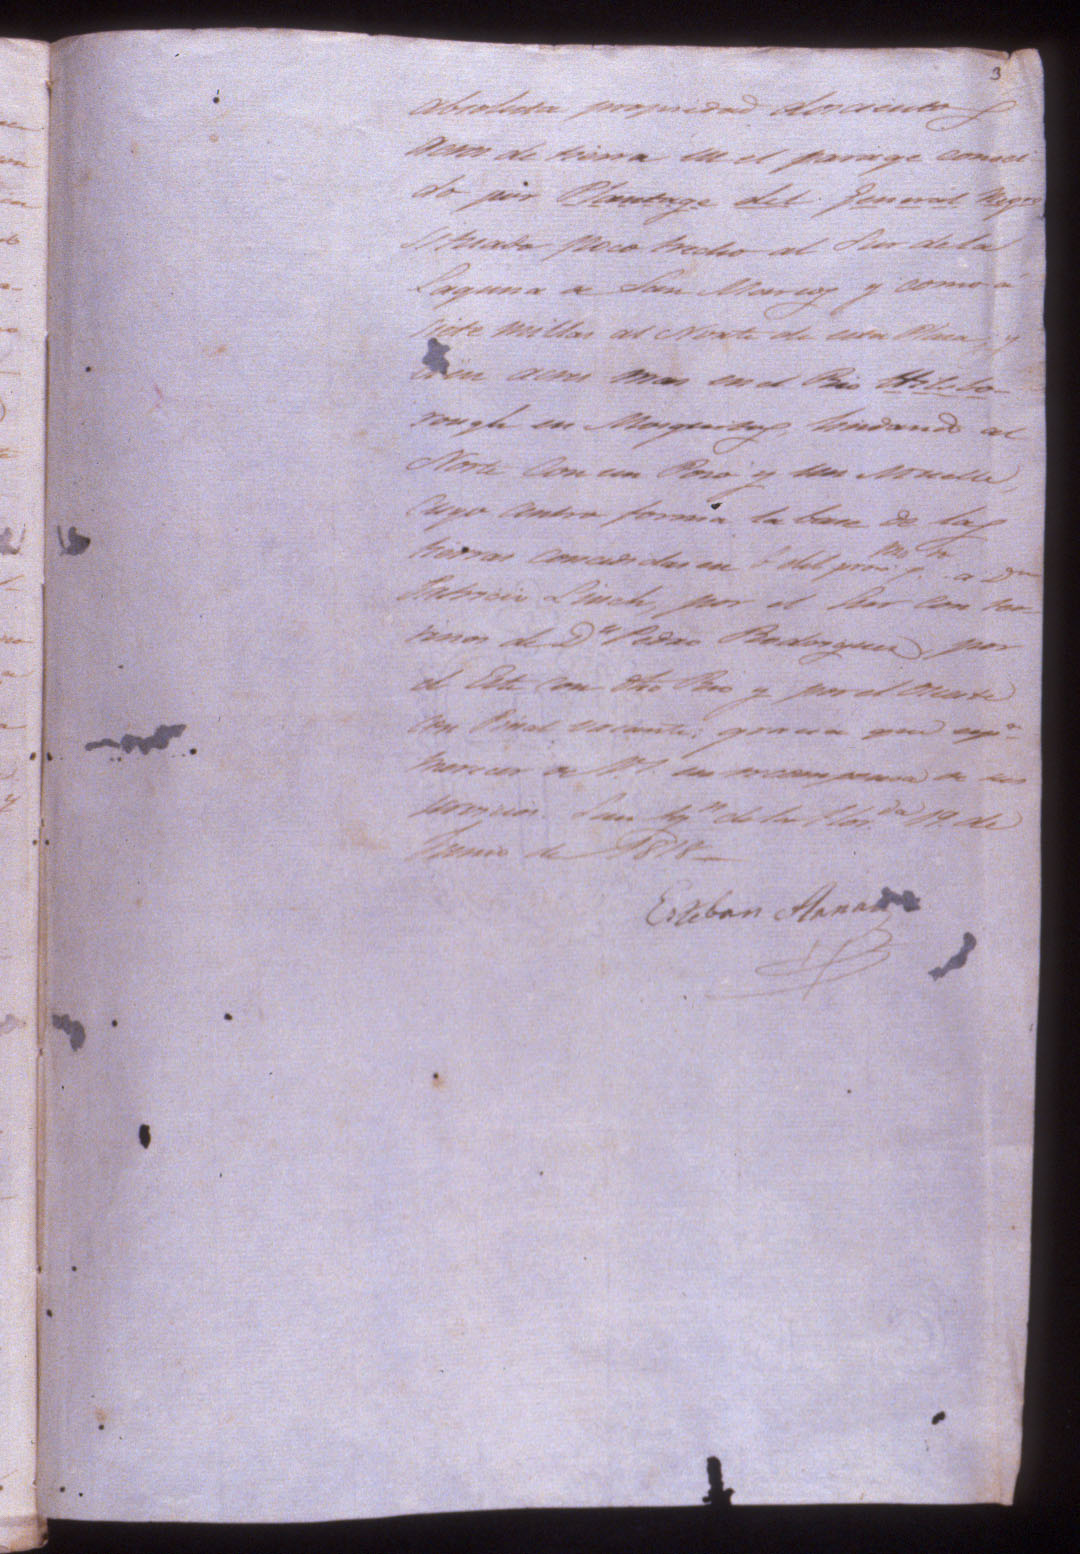 3
absoluta propiedad doscientos
acres de tierra en el parage conoci-
do por Plantage del General Negro
situado poco trecho al Sur de la
Laguna de San Marcos y como á
siete millas al Norte de esta Plaza, y
cien acres mas en el Rio Hilsbo-
rough en Mosquitos, lindando al
Norte con un Poso y un Muelle,
cuyo centro forma la base de las
tierras concedidas en 6 del a Dn
Patricio Linch, por el Sur con ter-
renos de Dn Pedro Rodriguez, por
el Este con dho Rio y por el Oeste
con Pinal vacante; gracia que espa
merecer de V.S. en recompensa de sus
servicios. San Agn de la Florda 19. de
Junio de 1818—
Esteban Arnau